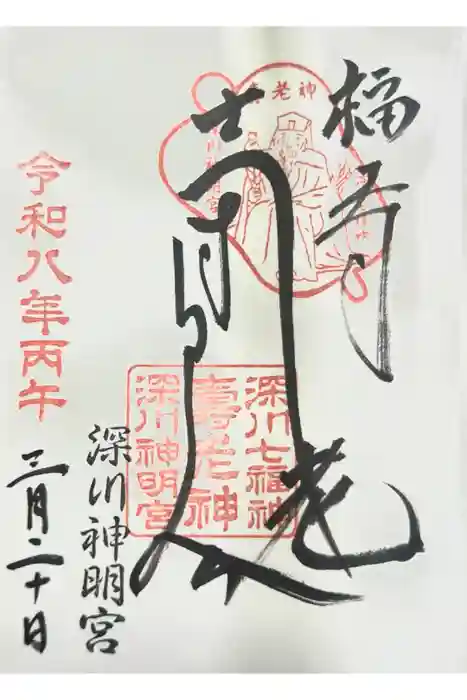 福寿
老
老神
深川七福神
壽老神
深川神明宮
深川神明宮
令和八年丙午
三月二十日